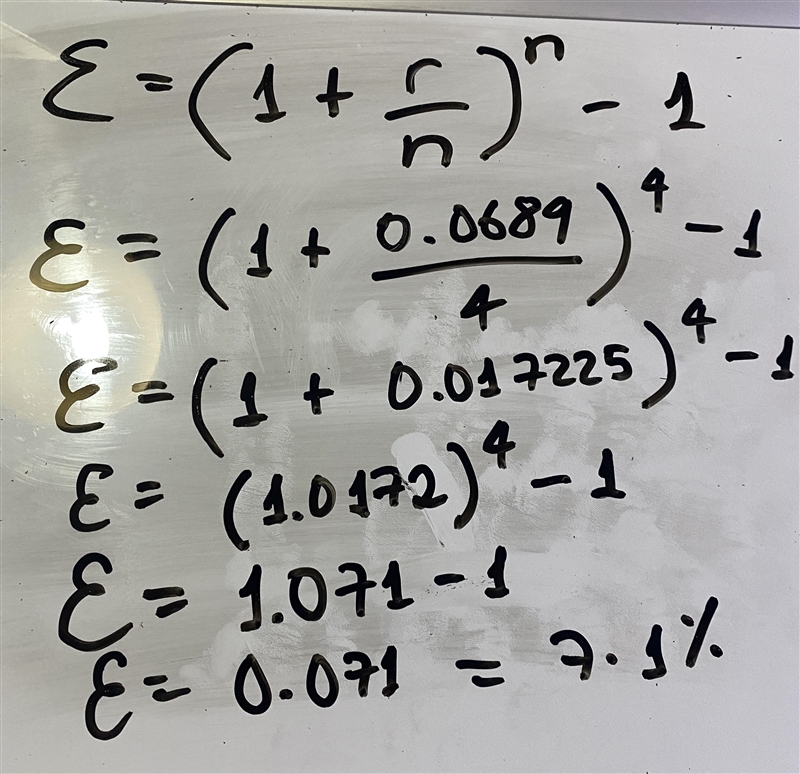 Ɛ = (1 + r/n)^n - 1
Ɛ = (1 + 0.0689/4)^4 - 1
Ɛ = (1 + 0.017225)^4 - 1
Ɛ = (1.0172)^4 - 1
Ɛ = 1.071 - 1
Ɛ = 0.071 = 7.1%